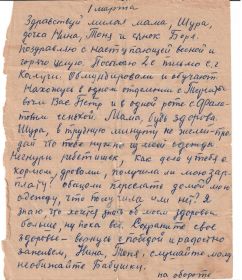 1 марта
Здравствуй милая мама, Шура,
дочка Нина, Тоня и сынок Боря.
поздравляю с наступающей весной и
горячо целую. Посылаю 2е письмо с г.
Калуги. Обмундировали и обучают.
Нахожусь в одном отделении с
Петр и в одной роте с
Мама, будь здорова.
Шура, в трудную минуту не жалей- про-
дай что тебе нужно из моей одежды
ребятишек, как дело у тебя с
кормом, дровами, получила ли мою зар-
плату? обещали переслать домой мою
одежду, что получила или нет? Я
знаю что хочется знать об моем здоровьи
больше, ну пока всё. Сохраните свое
здоровье - вернусь с победой и радостно
заживем, Нина, Тоня, слушайте маму
необижайте Бабушку.
на обороте